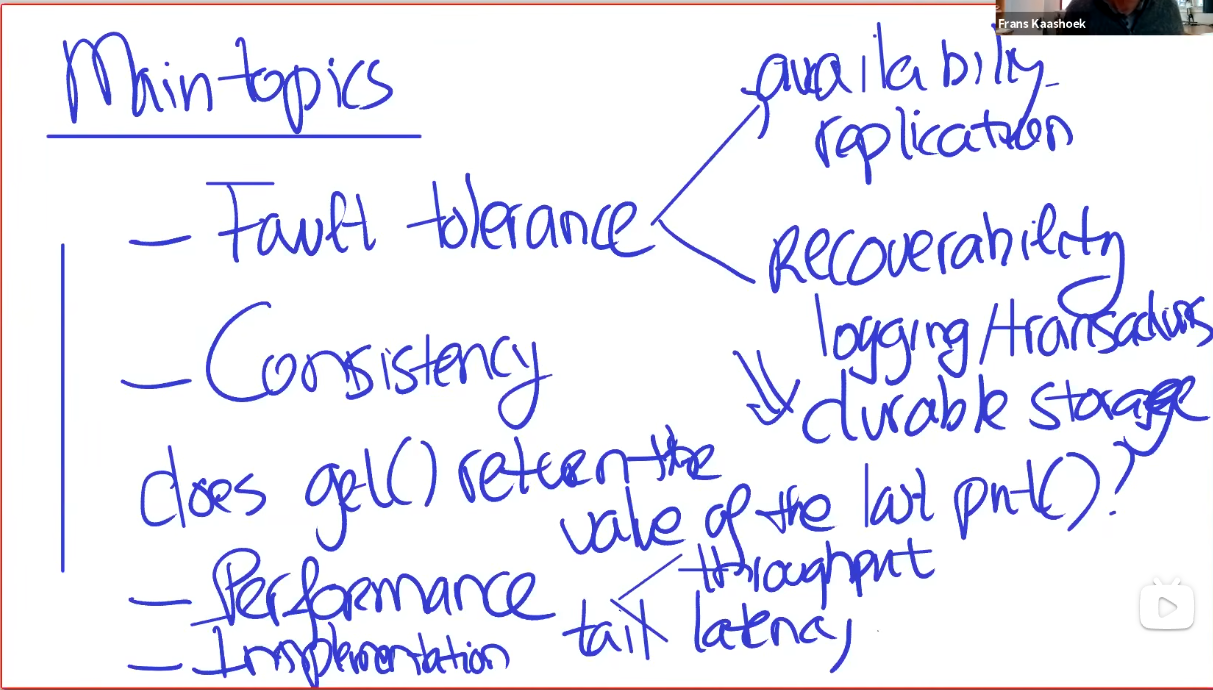 Frans Kaashoek
Main topics
availabilty
replication
- Fault tolerance
Recoverability
logging/transactions
durable storage
- Consistency
does get() return the
value of the last put()?
- Performance
throughput
tail latency
- Implementation